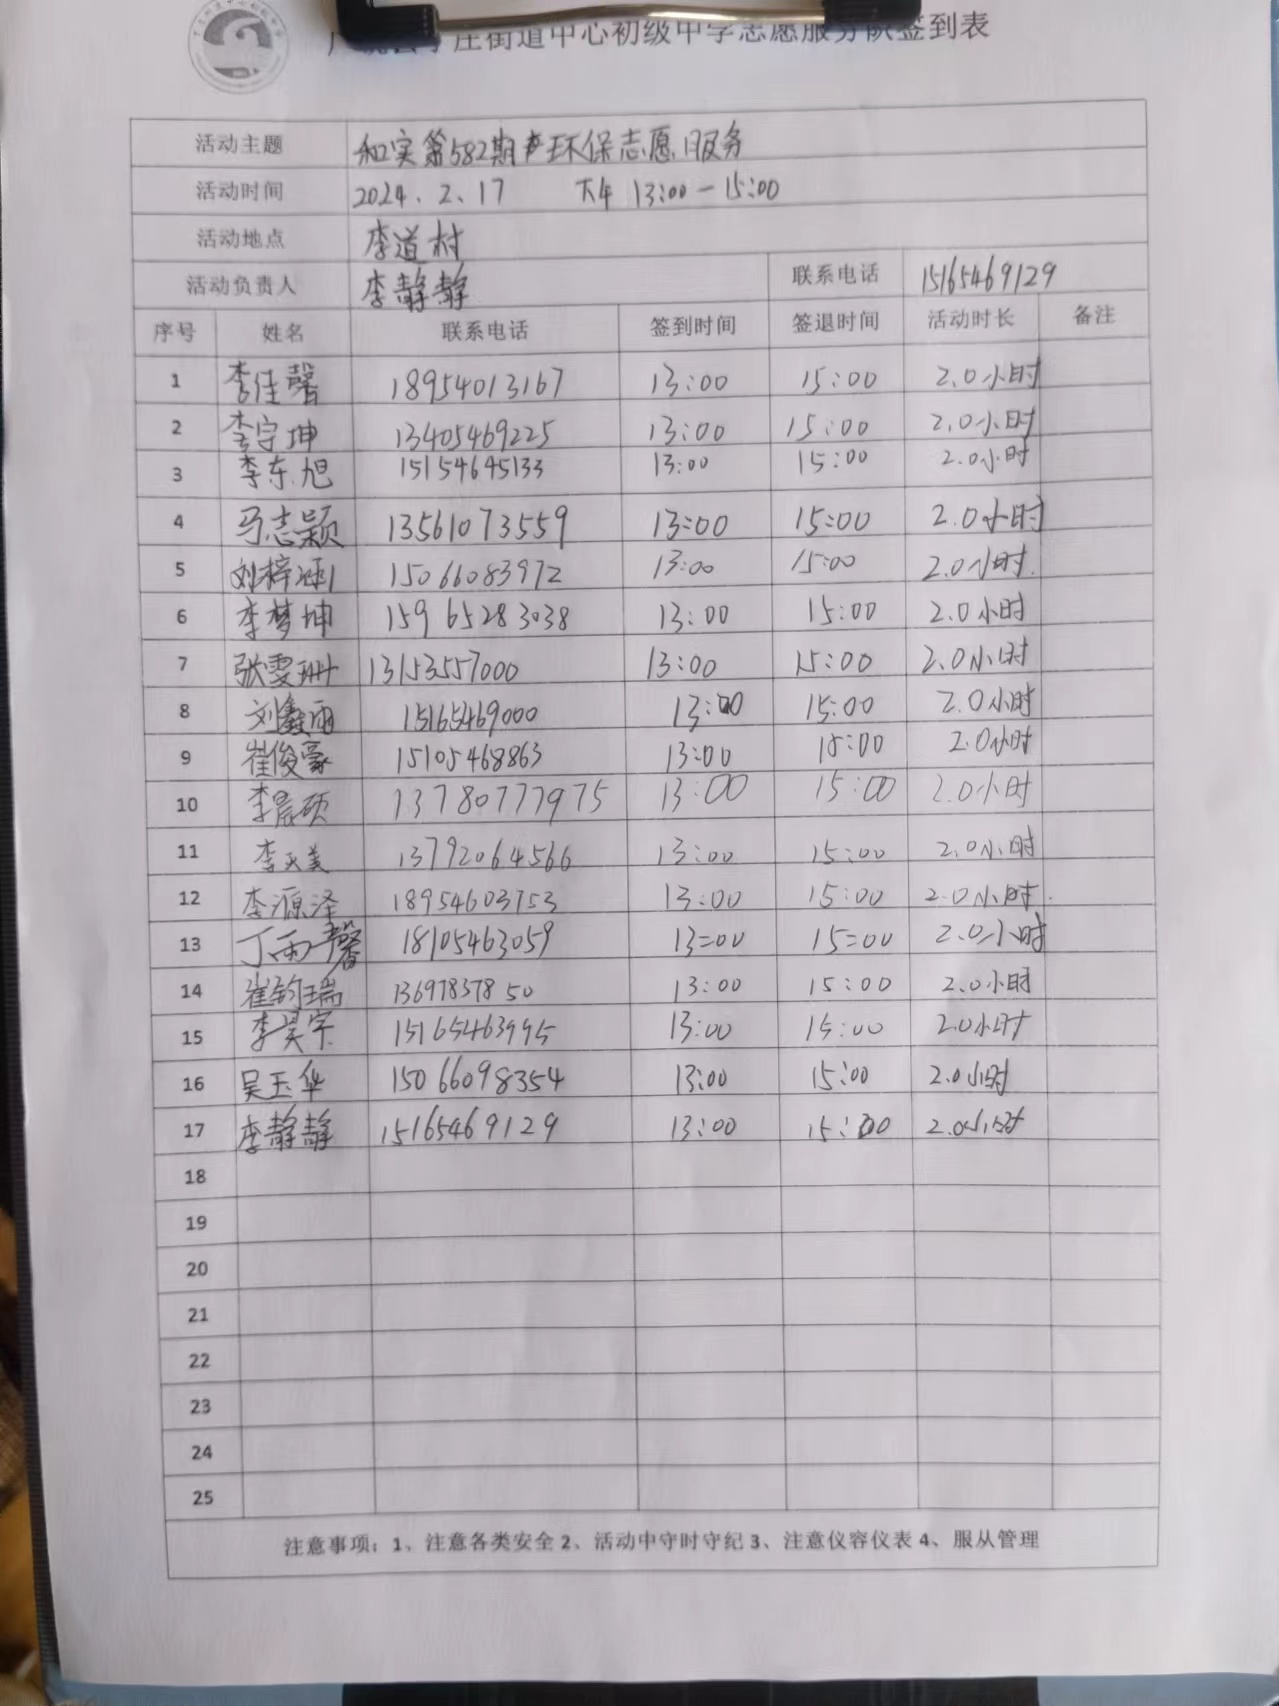 庄街道中心初级中学志愿服务队签到表
活动主题 和实第582期 环保志愿服务
活动时间 2024.2.17 下午 13:00-15:00
活动地点 李道村
活动负责人 李静静 联系电话 15165469129
序号 姓名 联系电话 签到时间 签退时间 活动时长 备注
1 李佳馨 18954013167 13:00 15:00 2.0小时
2 李守坤 13405469225 13:00 15:00 2.0小时
3 李东旭 15154645133 13:00 15:00 2.0小时
4 马志颖 13561073559 13:00 15:00 2.0小时
5 刘梓涵 15066083972 13:00 15:00 2.0小时.
6 李梦坤 15965283038 13:00 15:00 2.0小时
7 张雯珊 13153557000 13:00 15:00 2.0小时
8 刘鑫雨 15165469000 13:00 15:00 2.0小时
9 崔俊豪 15105468863 13:00 15:00 2.0小时
10 李晨硕 13780777975 13:00 15:00 2.0小时
11 李天美 13792064566 13:00 15:00 2.0小时
12 李源泽 18954603753 13:00 15:00 2.0小时.
13 丁雨馨 18105463059 13:00 15:00 2.0小时
14 崔钧瑞 13697837850 13:00 15:00 2.0小时
15 李昊宇 15165463995 13:00 15:00 2.0小时
16 吴玉华 15066098354 13:00 15:00 2.0小时
17 李静静 15165469129 13:00 15:00 2.0小时
18
19
20
21
22
23
24
25
注意事项：1、注意各类安全 2、活动中守时守纪 3、注意仪容仪表 4、服从管理